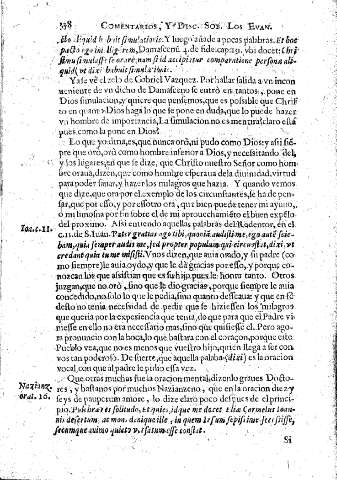 538 COMENTARIOS, Y DISC. SOB. LOS EVAN.
cto aliquid habuit simulationis. Y luego añade a pocas palabras. Et hoc
pacto ego intelligerem, Damascenũ 4. de fide. cap. 15. ubi docet: Chri
stum simulasse se orare; nam si id accipitur comparatione persona ali-
quid, ut dixi habuit simulationis.
Ya se ve el zelo de Gabriel Vazquez. Por hallar salida a vn incon
ueniente de vn dicho de Damasceno se entrò en tantos, pone en
Dios simulacion, y quiere que pensemos, que es posible que Christ
to en quanto Dios haga lo que se pone en duda, que lo puede hazer
vn hombre de importancia. La simulacion no es mentira, claro està
pues como la pone en Dios?
Lo que yo dima, es, que nunca orò, ni pudo como Dios: y así siẽ-
pre que orò, orò como hombre inferior a Dios, y necesitando del,
y los lugares, en que se dize, que Christo nuestro Señor como hom-
bre oraua, dizen, que como hombre esperaua de la diuinidad, virtud
para poder sanar, y hazer los milagros que hazia. Y quando vemos
que dize, que ora por el exemplo de los circunstantes, se ha de pen-
sar, que por esso, y por essotro ora, que bien puede tener mi ayuno,
ò mi limosna por fin sobre el de mi aprouechamiẽto el bien expẽlo
del proximo. Assi entendo aquellas palabras del Redentor, en el
Ioa. c. 11. c. 11. de S. Iuan. Pater gratias ago tibi, quoniã audisti me. ego autẽ scie-
bam, quia semper audis me, sed propter populum qui circunstat, dixi, vt
credant quia tu me misisti. Vnos dizen, que auia orado, y su padre (co
mo siempre) le auia oydo, y que le dà gracias por esso, y porque co-
nozcan los que assistian que es su hijo, pues le honra tanto. Otros
juzgan, que no orò, sino que le dio gracias, porque siempre le auia
concedido, no solo lo que le pedia, sino quanto desseaua: y que en fe
desto no tenia necessidad de pedir que se hiziessen los milagros
que queria por la experiencia que tenia, de que para que el Padre vi
niesse en ello no era necessario mas, sino que quisiesse el. Pero ago-
ra pronuncio con la boca, lo que bastaua con el coraçon, porque este
Pueblo vea, que no es menos que vuestro hijo, quien llega a ser con
vos tan poderoso. De suerte, que aquella palabra (dixi) es la oracion
vocal, con que al padre le pidio esta vez.
Que otras muchas fue la oracion mental, dizenlo graues Docto-
Nazianz. res, y bastanos por muchos Nazianzeno, que en la oracion diez y
orat. 16. seys de pauperum amore, lo dize claro poco despues de el princi-
pio. Pulchra res solitudo, et quies, idque me docet Elia Carmelus Ioan-
nis desertum, ac mons denique ille, in quem Iesum sæpissime secessisse,
secumque animo quieto versatum esse constat.
Si